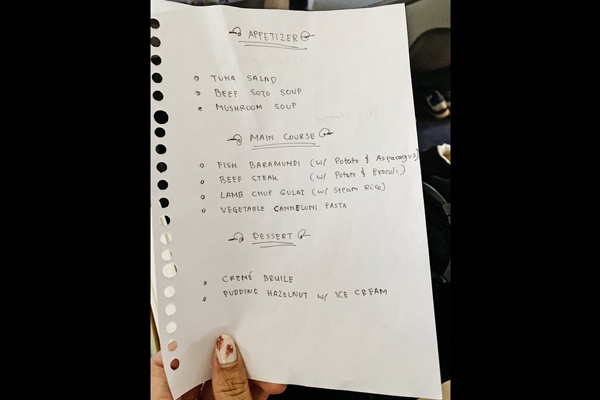 APPETIZER
TUNA SALAD
BEEF SOTO SOUP
MUSHROOM SOUP
MAIN COURSE
FISH BARAMUNDI (w/ Potato & Asparagus)
BEEF STEAK (w/ Potato & Brocoli)
LAMB CHOP GULAI (w/ Steam Rice)
VEGETABLE CANNELONI PASTA
DESSERT
CREMÉ BRUILE
PUDDING HAZELNUT w/ ICE CREAM